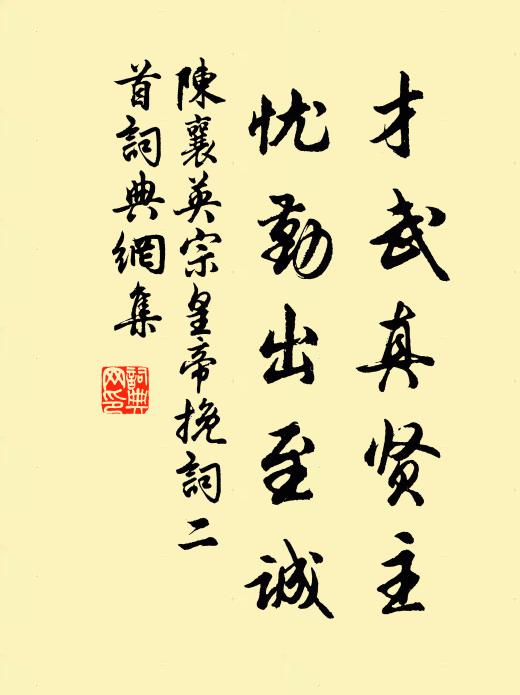 才武真贤主
忧勤出至诚
陳襄英宗皇帝挽詞二
首詞典網集
詞典
网印